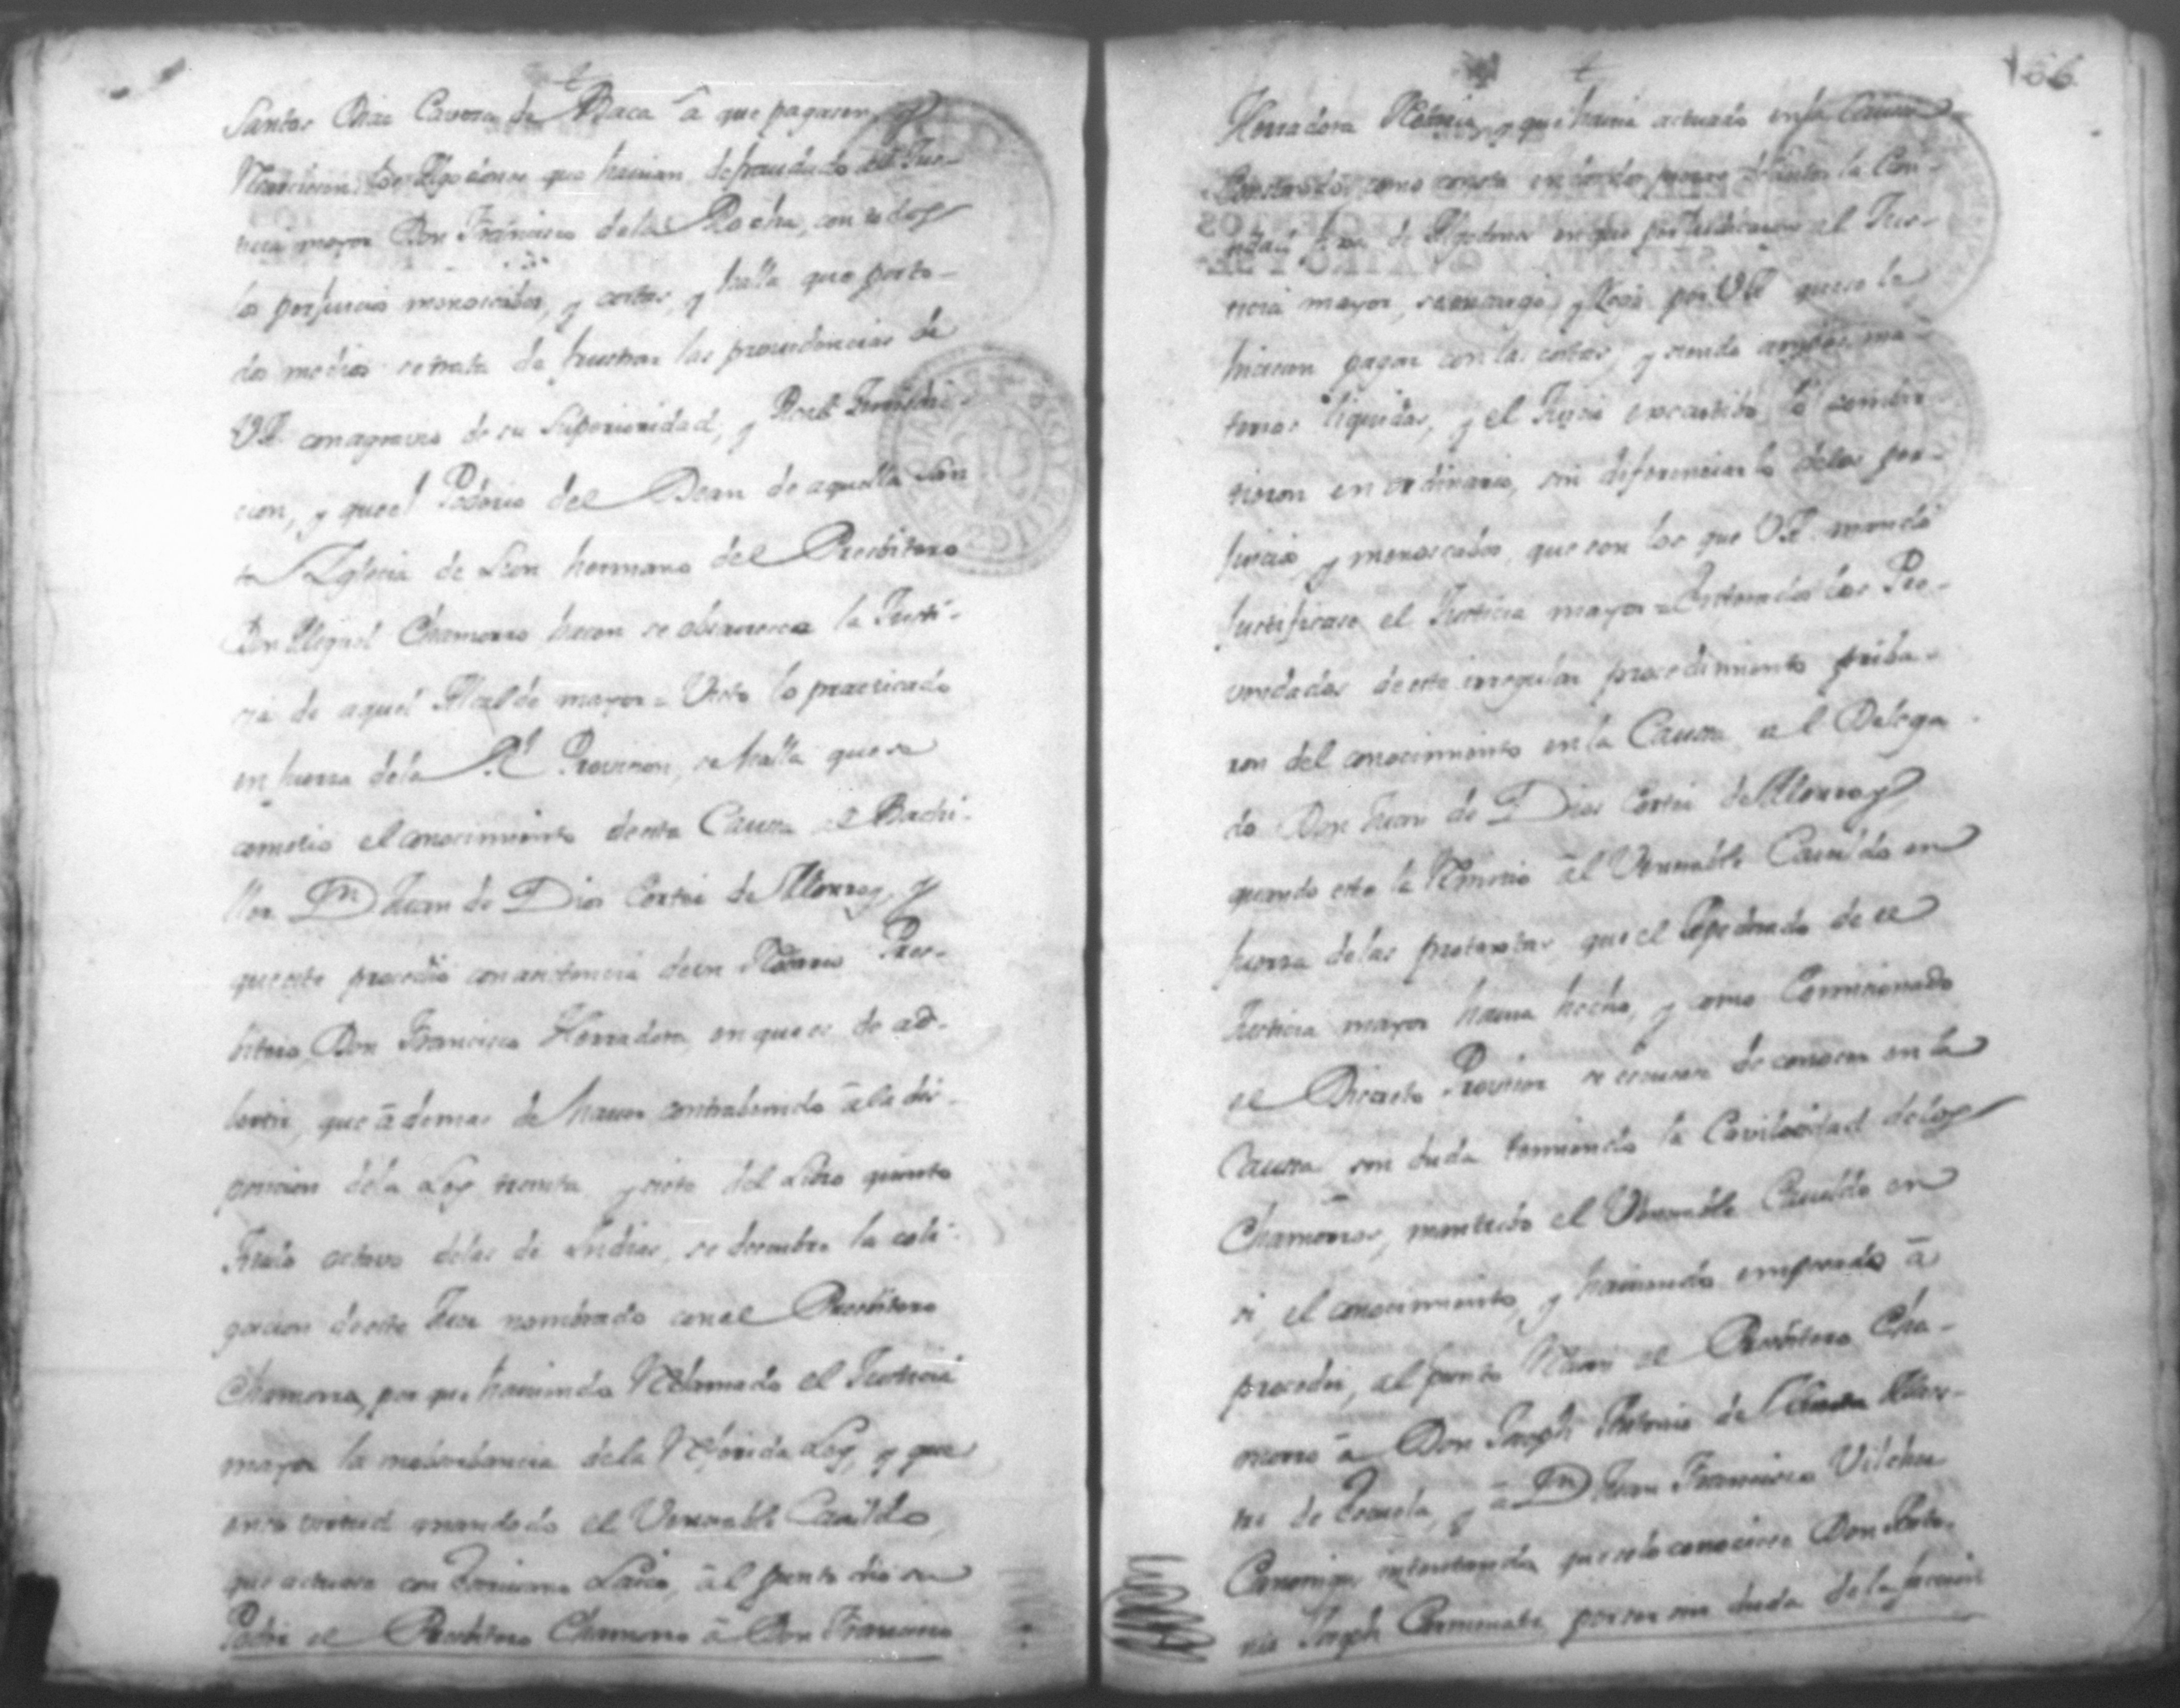 Santos Dias Cavesa de Baca â que pagasen, y
los Algodones que havian defraudado al Jus-
ticia mayor Don Francisco dela Rocha, con todos
los perjuicios menoscabos, y costas, y halla que por to-
dos medios se trata de frustrar las providencias de
VA. con agravio de su Superioridad, y Real Jurisdic-
cion, y que el Poderio del Dean de aquella San
ta Iglesia de Leon hermano del Presbitero
Don Miguel Chamorro hacen se obscuresca la Justi-
cia de aquel Alcalde mayor = Visto lo practicado
en fuerza dela Rl Provision, se halla que se
cometio el conocimiento de esta Causa al Bachi-
ller Dn Juan de Dios Cortes de Monroy, y
que este procedio con asistencia de un Notario Pres-
bitero Don Francisco Herradora, en que es de ad-
bertir, que âdemas de haver contrabenido âla dis-
posicion dela Ley treinta y siete del Libro quinto
Titulo octavo delas de Indias, se descubre la coli-
gacion de este Juez nombrado con el Presbitero
Chamorro, por que haviendo Reclamado el Justicia
mayor la inobserbancia dela Referida Ley, y que
en su virtud mandado el Venerable Cavildo,
que actuase con Escrivano Laico, âl punto dio su
Poder el Presbitero Chamorro â Don Francisco
Herradora Notario, y que havia actuado en la Causa
como consta en
de Algodones en que perjudicaron al Jus-
ticia mayor, por VA que se le
hiciesen pagar con las costas, y siendo ambas ma-
terias liquidas, y el Juicio executibo, lo combir
tieron en ordinario, sin diferenciarlo delos per-
juicios, y menoscabos, que son los que VA. mandó
Justificase el Justicia mayor = los Pre-
vendados de este irregular procedimiento priba-
ron del conocimiento en la Causa al Delega
do Don Juan de Dios Cortes de Monroy,
quando este la Remitio âl Venerable Cavildo en
fuerza delas protestas, que el Apoderado de el
Justicia mayor havia hecho, y como Comisionado
el Discreto Provisor se escusase de conocer en la
Causa sin duda temiendo la Cavilosidad delos
Chamorros, el Venerable Cavildo en
si el conocimiento, y haviendo empesado â
proceder, al punto Recusó el Presbitero Cha-
morro â Don Joseph Antonio de Maes-
tre de Escuela, y â Dn Juan Francisco Vilches
Canonigo intentando que solo conociese Don Anto-
nio Joseph por ser sin duda dela faccion